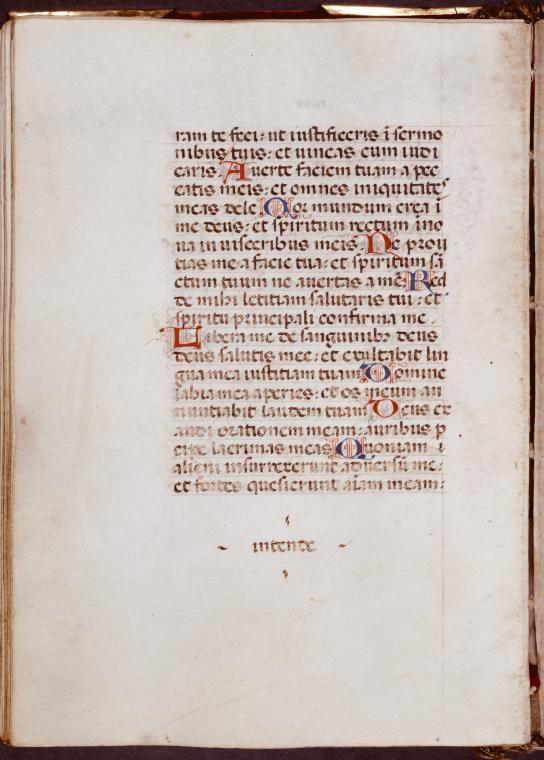 ram te feci: ut iustificeris ĩ sermo
nibus tuis: et uincas cum iudi
caris. Auerte faciem tuam a pec
catis meis: et omnes iniquitates
meas dele. Cor mundum crea ĩ
me deus: et spiritum rectum ĩno
ua in uisceribus meis. Ne proii
cias me a facie tua: et spiritum sã
ctum tuum ne auertas a me. Red
de mihi letitiam salutaris tui: et
spiritu principali confirma me.
Libera me de sanguinibꝰ deus
deus salutis mee: et exultabit lin
gua mea iustitiam tuam. Domine
labia mea aperies: et os meum an
nuntiabit laudem tuam. Deus ex
audi orationem meam: auribus p
cipe lacrimas meas. Quoniam
alieni insurrexerunt aduersũ me:
et fortes quesierunt aĩam meam:
intende